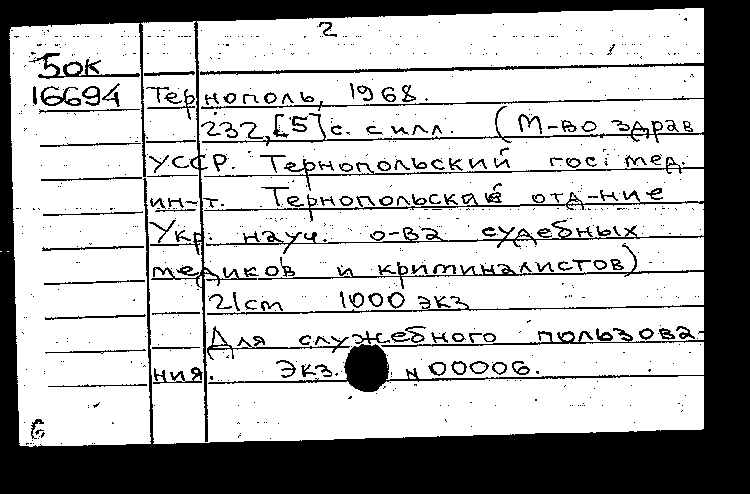 2
БОК
16694 Тернополь, 1968.
232,[5]с. с илл. (М-во здрав
УССР. Тернопольский гос. мед.
ин-т. Тернопольское отд-ние
Укр. науч. о-ва судебных
медиков и криминалистов)
21см 1000 экз
Для служебного пользова-
ния. Экз. N 00006.
6